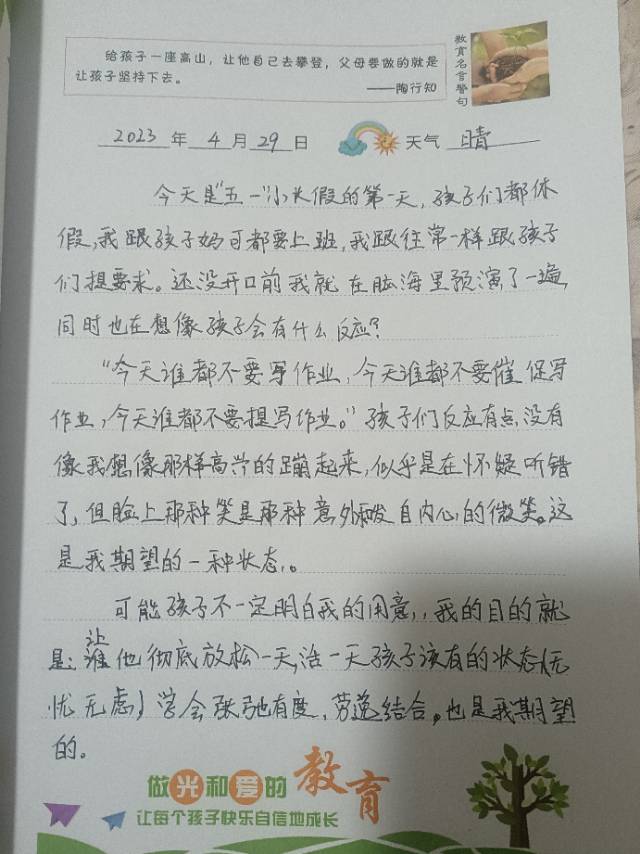 给孩子一座高山，让他自己去攀登，父母要做的就是
让孩子坚持下去。
——陶行知
教育名言警句
2023 年 4 月 29 日 天气 晴
今天是"五一"小长假的第一天，孩子们都休
假，我跟孩子妈可都要上班，我跟往常一样跟孩子
们提要求。还没开口前我就在脑海里预演了一遍，
同时也在想像孩子会有什么反应？
"今天谁都不要写作业，今天谁都不要催促写
作业，今天谁都不要提写作业。"孩子们反应有点，没有
像我想像那样高兴的蹦起来，似乎是在怀疑听错
了，但脸上那种笑是那种意外和发自内心的微笑。这
是我期望的一种状态。
可能孩子不一定明白我的用意，我的目的就
是：让他彻底放松一天，活一天孩子该有的状态（无
忧无虑）学会张弛有度，劳逸结合。也是我期望
的。
做光和爱的教育
让每个孩子快乐自信地成长